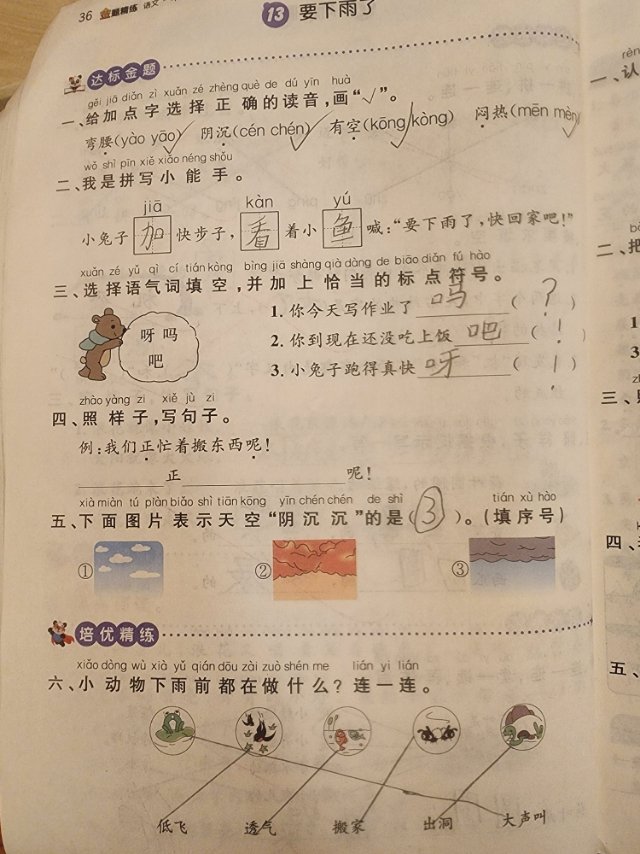 36 金题精练 语文
13 要下雨了
达标金题
gěi jiā diǎn zì xuǎn zé zhèng què de dú yīn huà
一、给加点字选择正确的读音,画“√”。
弯腰(yào yāo)√ 阴沉(cén chén)√ 有空(kōng kòng)√ 闷热(mēn mèn)√
wǒ shì pīn xiě xiǎo néng shǒu
二、我是拼写小能手。
jiā kàn yú
小兔子加快步子,看着小鱼喊:“要下雨了,快回家吧!”
xuǎn zé yǔ qì cí tián kòng bìng jiā shàng qià dàng de biāo diǎn fú hào
三、选择语气词填空,并加上恰当的标点符号。
呀 吗
吧
1. 你今天写作业了 吗 ( ? )
2. 你到现在还没吃上饭 吧 ( ! )
3. 小兔子跑得真快 呀 ( ! )
zhào yàng zi xiě jù zi
四、照样子,写句子。
例:我们正忙着搬东西呢!
正 呢!
xià miàn tú piàn biǎo shì tiān kōng yīn chén chén de shì tián xù hào
五、下面图片表示天空“阴沉沉”的是( ③ )。(填序号)
① ② ③
培优精练
xiǎo dòng wù xià yǔ qián dōu zài zuò shén me lián yi lián
六、小动物下雨前都在做什么?连一连。
低飞 透气 搬家 出洞 大声叫
一、认
二、把
1
3
三、
四、
五、